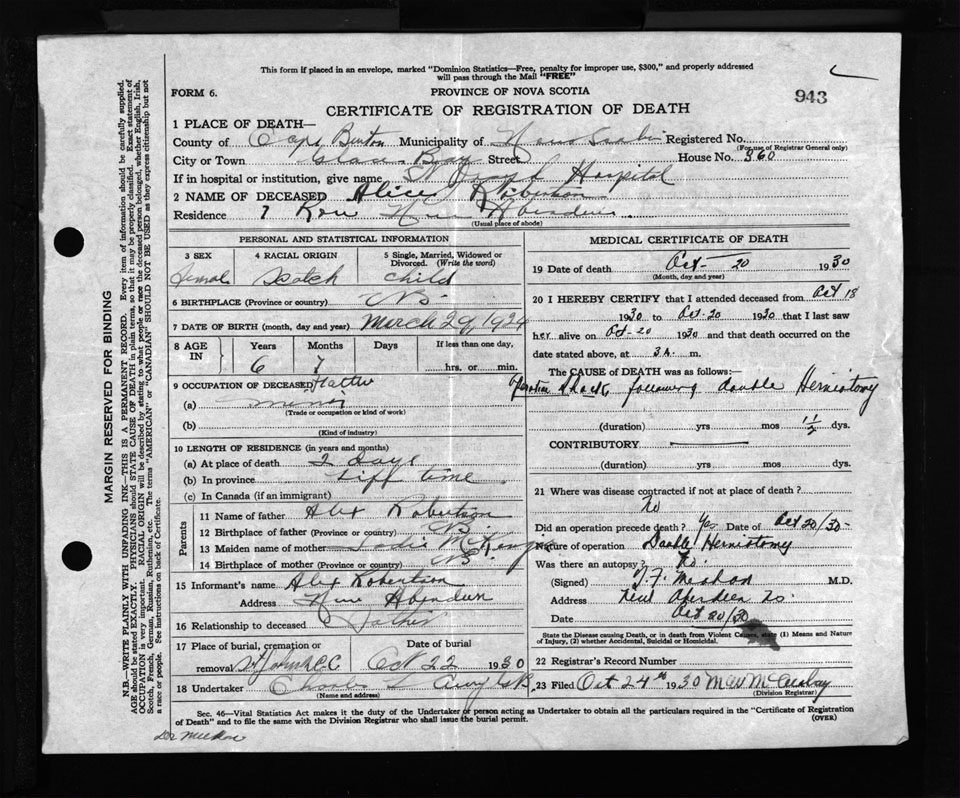 This form if placed in an envelope, marked "Dominion Statistics—Free, penalty for improper use, $300," and properly addressed
will pass through the Mail "FREE"
FORM 6.
PROVINCE OF NOVA SCOTIA
943
CERTIFICATE OF REGISTRATION OF DEATH
1 PLACE OF DEATH—
County of Cape Breton Municipality of Nova Scotia Registered No.
(For use of Registrar General only)
City or Town Glace Bay Street House No. 360
If in hospital or institution, give name St Joseph Hospital
2 NAME OF DECEASED Alice Robertson
Residence 7 Row New Aberdeen
(Usual place of abode)
PERSONAL AND STATISTICAL INFORMATION
3 SEX
4 RACIAL ORIGIN
5 Single, Married, Widowed or Divorced. (Write the word)
Femal
Scotch
child
6 BIRTHPLACE (Province or country) NS
7 DATE OF BIRTH (month, day and year) March 29, 1924
8 AGE IN
Years
Months
Days
If less than one day,
6
7
hrs. or min.
9 OCCUPATION OF DECEASED Father
(a) miner
(Trade or occupation or kind of work)
(b)
(Kind of industry)
10 LENGTH OF RESIDENCE (in years and months)
(a) At place of death 2 days
(b) In province Liff time
(c) In Canada (if an immigrant)
Parents
11 Name of father Alex Robertson
12 Birthplace of father (Province or country) NS
13 Maiden name of mother McKenzie
14 Birthplace of mother (Province or country) NS
15 Informant's name Alex Robertson
Address New Aberdeen
16 Relationship to deceased Father
17 Place of burial, cremation or removal St Johns C.C.
Date of burial
Oct 22 1930
18 Undertaker Charles L
(Name and address)
MEDICAL CERTIFICATE OF DEATH
19 Date of death Oct- 20 1930
(Month, day and year)
20 I HEREBY CERTIFY that I attended deceased from Oct 18
1930 to Oct-20 1930 that I last saw
her alive on Oct-20 1930 and that death occurred on
date stated above, at 3 A. m.
The CAUSE OF DEATH was as follows:—
Operation Shock following double Herniotomy
(duration) yrs mos 1½ dys.
CONTRIBUTORY
(duration) yrs mos dys.
21 Where was disease contracted if not at place of death?
No
Did an operation precede death? Yes Date of Oct 20/30-
Nature of operation Double Herniotomy
Was there an autopsy? No.
(Signed) M.D.
Address New Aberdeen NS
Date Oct 20/30
State the Disease causing Death, or in death from Violent Causes, state (1) Means and Nature
of Injury, (2) whether Accidental, Suicidal or Homicidal.
22 Registrar's Record Number
23 Filed Oct 24th 1930
(Division Registrar)
Sec. 46—Vital Statistics Act makes it the duty of the Undertaker or person acting as Undertaker to obtain all the particulars required in the "Certificate of Registration
of Death" and to file the same with the Division Registrar who shall issue the burial permit.
(OVER)
MARGIN RESERVED FOR BINDING
N.B.—WRITE PLAINLY WITH UNFADING INK—THIS IS A PERMANENT RECORD. Every item of information should be carefully supplied.
AGE should be stated EXACTLY. PHYSICIANS should STATE CAUSE OF DEATH in plain terms, so that it may be properly classified. Exact statement of
OCCUPATION is very important. RACIAL ORIGIN will be described by stating to what people or race the deceased person belonged, whether English, Irish,
Scotch, French, German, Russian, Ruthenian, etc. The terms "AMERICAN" or "CANADIAN" SHOULD NOT BE USED as they express citizenship but not
a race or people. See instructions on back of Certificate.